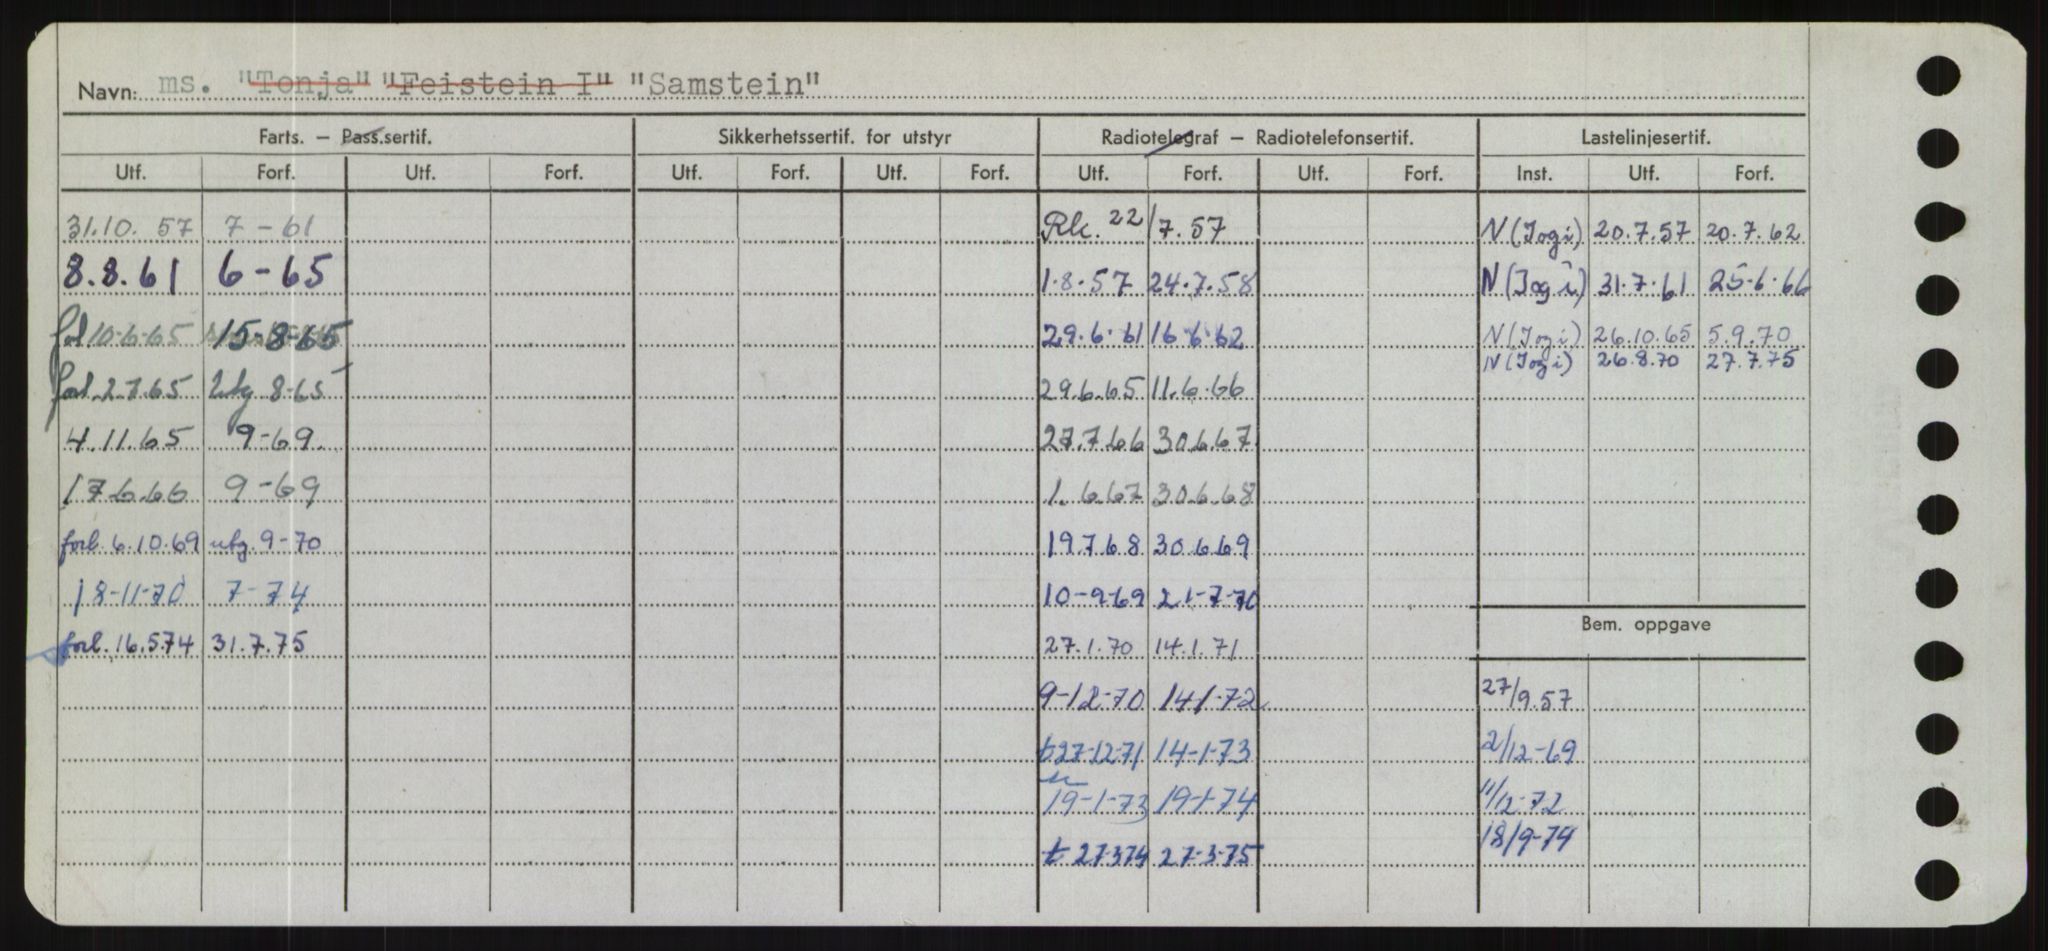 Navn: ms. "Tonja" "Feistein I" "Samstein"
Farts. — Pass.sertif. Sikkerhetssertif. for utstyr Radiotelegraf — Radiotelefonsertif. Lastelinjesertif.
Utf. Forf. Utf. Forf. Utf. Forf. Utf. Forf. Utf. Forf. Utf. Forf. Inst. Utf. Forf.
31.10. 57 7 - 61 Rk. 22/7.57 N (Jogi) 20.7.57 20.7.62
8.8.61 6 - 65 1.8.57 24.7.58 N (Jogi) 31.7.61 25-6.66
10-6-65 15-8-65 29.6.61 16.6.62 N (Jogi) 26.10.65 5.9.70
N (Jogi) 26.8.70 27.7.75
2.7.65 8-65 29.6.65 11.6.66
4.11.65 9-69. 27.7.66 30.6.67
17.6.66 9-69 1.6.67 30.6.68
forl. 6.10.69 utg. 9-70 19.7.68 30.6.69
18-11-70 7-74 10-9-69 21-7-70
Bem. oppgave
forl. 16.5.74 31.7.75 27.1.70 14.1.71
9-12-70 14/1-72 27/9.57
t 27-12-71 14-1-73 2/12-69
19-1-73 19-1-74 11/12-72
18/9-74
t 27.3.74 27-3-75